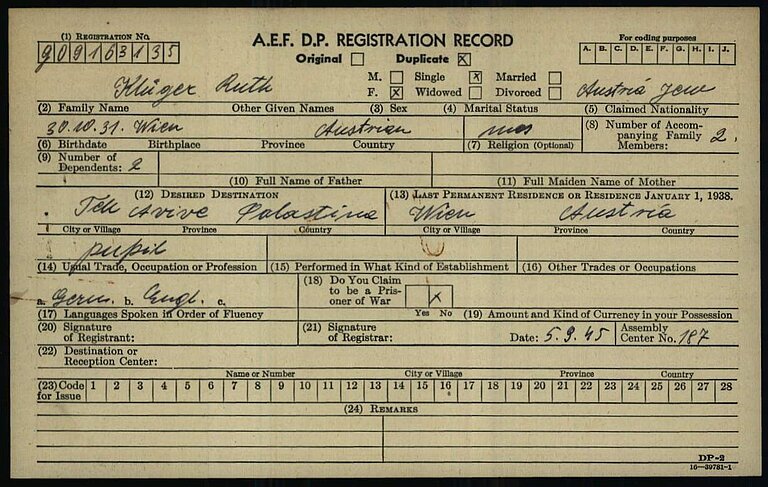 (1) REGISTRATION NO.
A.E.F. D.P. REGISTRATION RECORD
For coding purposes
909163135
Original Duplicate X
A. B. C. D. E. F. G. H. I. J.
M. Single X Married
Klüger Ruth F. X Widowed Divorced Austria Jew
(2) Family Name Other Given Names (3) Sex (4) Marital Status (5) Claimed Nationality
30.10.31. Wien Austrian mos (8) Number of Accompanying Family Members: 2.
(6) Birthdate Birthplace Province Country (7) Religion (Optional)
(9) Number of Dependents: 2
(10) Full Name of Father (11) Full Maiden Name of Mother
(12) DESIRED DESTINATION (13) LAST PERMANENT RESIDENCE OR RESIDENCE JANUARY 1, 1938.
Tell Avive Palastina Wien Austria
City or Village Province Country City or Village Province Country
pupil
(14) Usual Trade, Occupation or Profession (15) Performed in What Kind of Establishment (16) Other Trades or Occupations
a. Germ. b. Engl. c. (18) Do You Claim to be a Prisoner of War X
Yes No
(17) Languages Spoken in Order of Fluency (19) Amount and Kind of Currency in your Possession
(20) Signature of Registrant: (21) Signature of Registrar: Date: 5.9.45 Assembly Center No. 187
(22) Destination or Reception Center:
Name or Number City or Village Province Country
(23) Code for Issue 1 2 3 4 5 6 7 8 9 10 11 12 13 14 15 16 17 18 19 20 21 22 23 24 25 26 27 28
(24) REMARKS
DP-2
16—39781-1